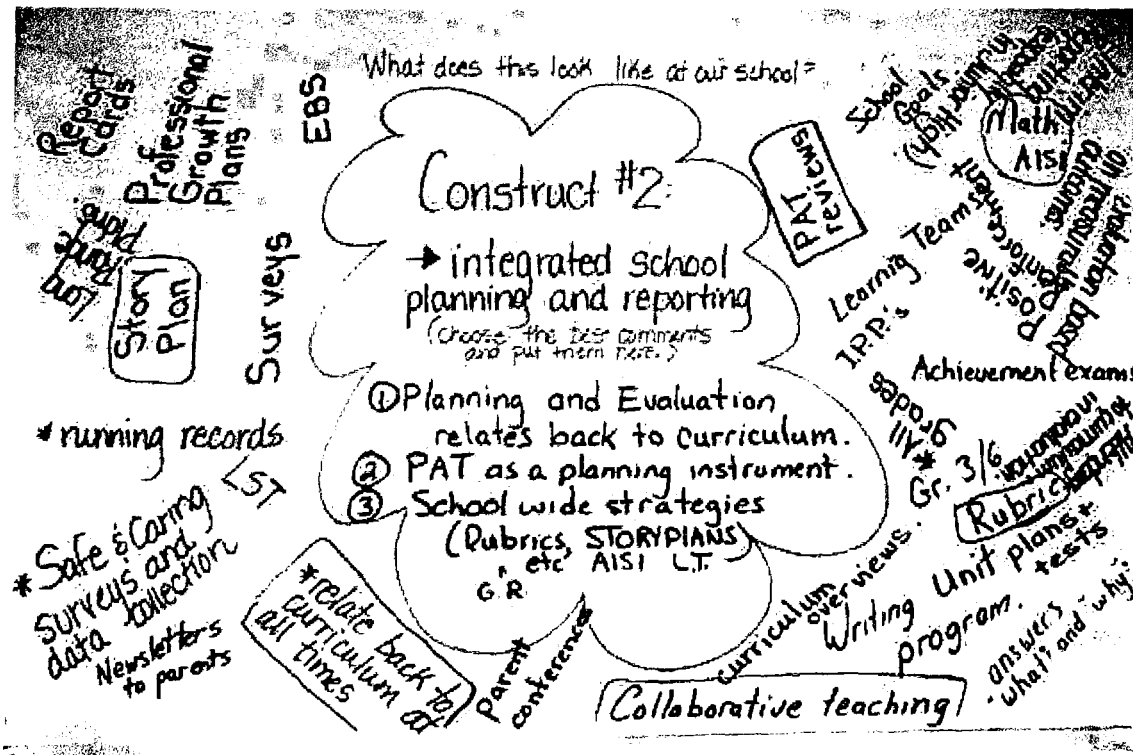 What does this look like at our school?
Construct #2:
→ integrated school
planning and reporting
(Choose the best comments
and put them here.)
① Planning and Evaluation
relates back to curriculum.
② PAT as a planning instrument.
③ School wide strategies
(Rubrics, STORYPLANS
etc AISI L.T.)
G.R.
Report
Cards
Professional
Growth
Plans
EBS
Long
Range
Plans
Story
Plan
Surveys
* running records
LST
* Safe & Caring
surveys and
data collection
Newsletters
to parents
* relate back to
curriculum at
all times
Parent
conference
Collaborative teaching
curriculum
overviews.
Writing
program.
Unit plans +
tests
answers
"what" and "why"
Rubrics
Gr. 3/6
Achievement exams
* All
grades
I.P.P.'s
Learnig Teams
Positive
reinforcement
evaluation based
on measurable
outcomes.
PAT
reviews
School
Goals
(Junior High)
Math
AISI